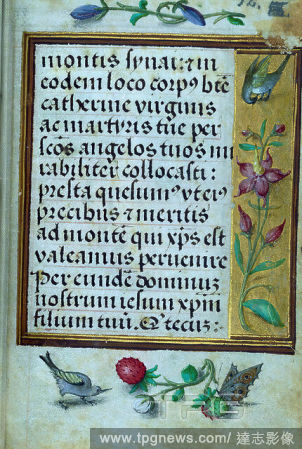 montis synai: et in
eodem loco corp⁹ btē
catherine virginis
ac martyris tue per
scōs angelos tuos mi
rabiliter collocasti:
presta quesum⁹ vt ei⁹
precibus et meritis
ad montē qui xp̄s est
valeamus peruenire
Per eundē dominuȝ
nostrum iesum xp̄m
filium tuū. Q tecuȝ:
TPG
www.tpgnews.com/ 達志影像